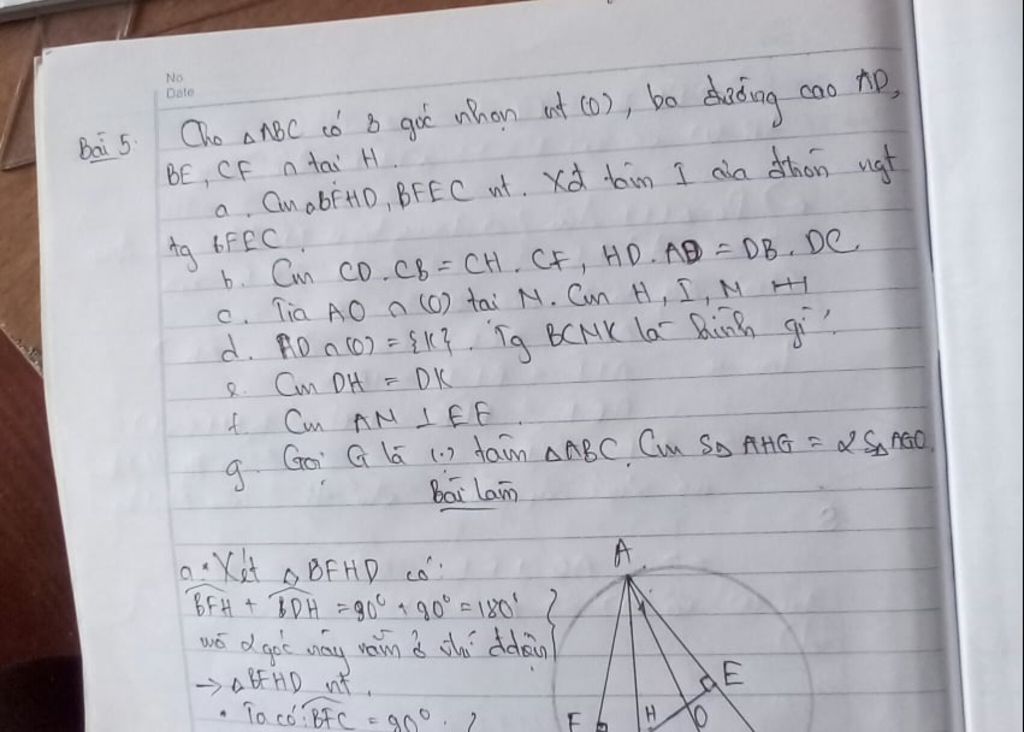 No
Date
Bài 5: Cho △ABC có 3 góc nhọn nt (O), ba đường cao AD,
BE, CF ∩ tại H.
a. Cm BFHD, BFEC nt. Xđ tâm I của đtròn ngt
tg BFEC.
b. Cm CD.CB = CH.CF, HD.AD = DB.DC
c. Tia AO ∩ (O) tại N. Cm H, I, N
d. AD ∩ (O) = {K}. Tg BCNK là hình gì?
e. Cm DH = DK
f. Cm AN ⊥ EF.
g. Gọi G là (.) tâm △ABC. Cm S△ AHG = 2S△ AGO.
Bài làm
a. Xét △ BFHD có:
BFH + BDH = 90° + 90° = 180° }
mà 2 góc này nằm ở vị trí đdiện
→ △ BFHD nt.
• Ta có: BFC = 90°. }
A
E
F
H
O